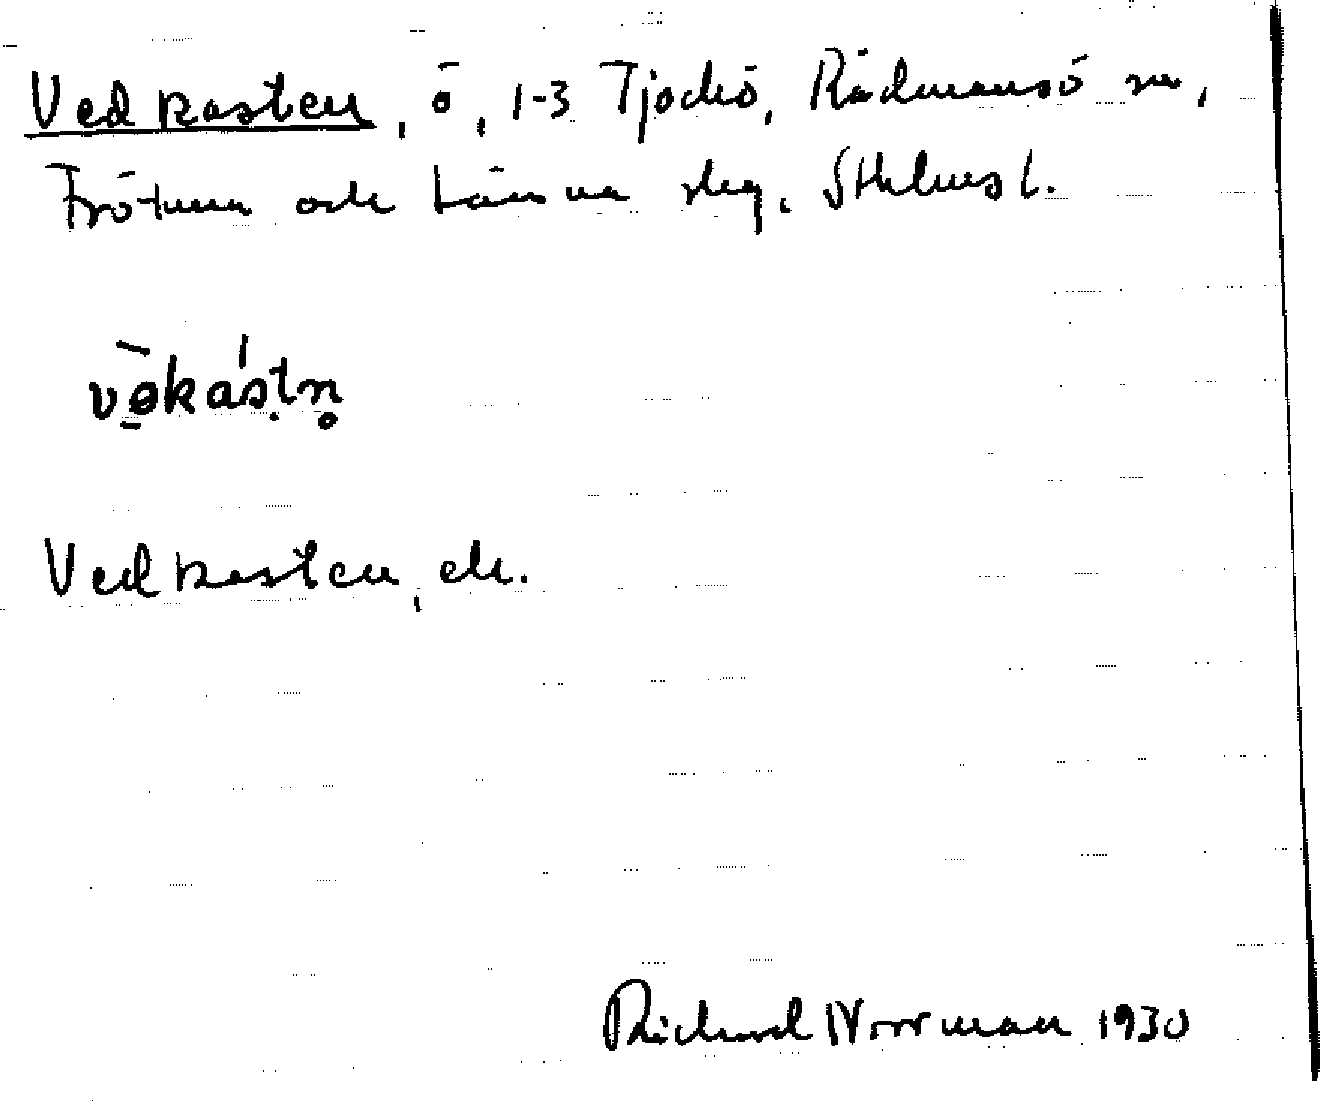 Vedkasten, ö, 1-3 Tjockö, Rådmansö sn,
Frötuna och Länna skg, Sthlms l.
vēkástn̥
Vedkasten, ek.
Richard Norrman 1930